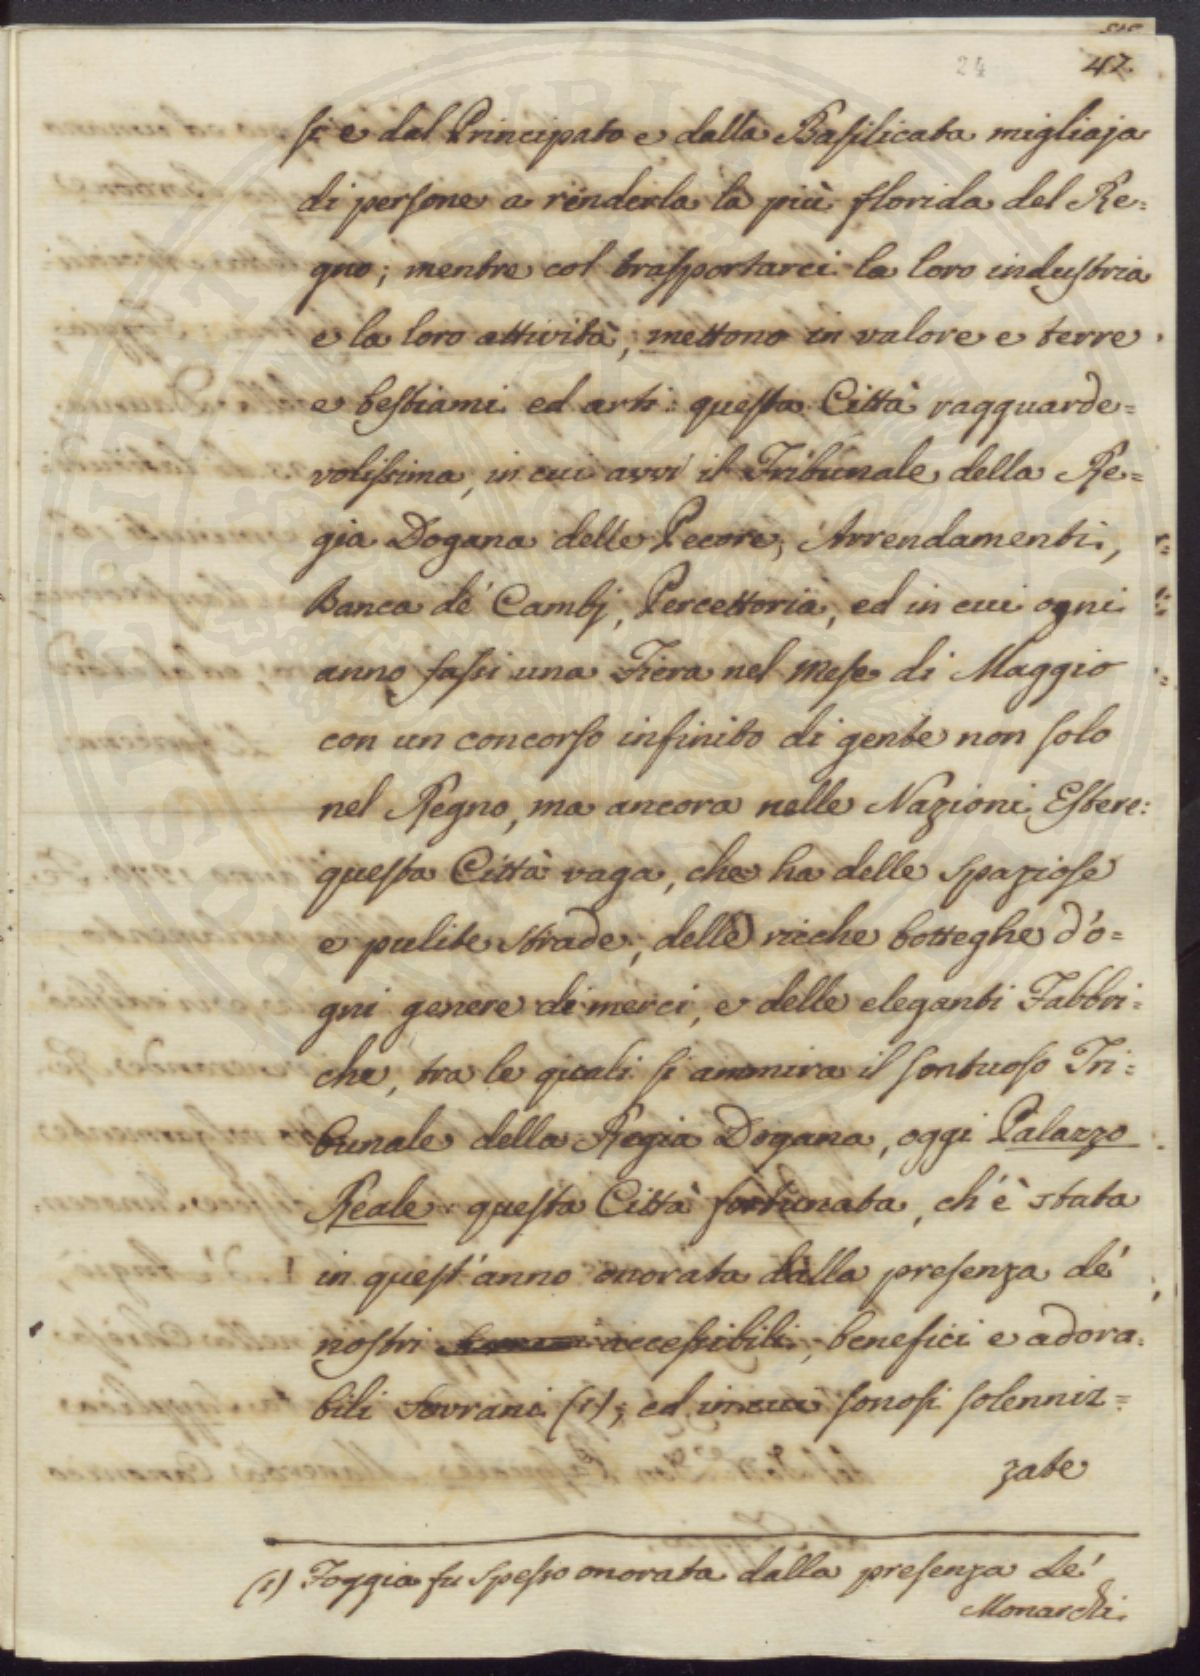 24
47.
si e dal Principato e dalla Basilicata migliaja
di persone a renderla la più florida del Re=
gno; mentre col trasportarci la loro industria
e la loro attività, mettono in valore e terre
e bestiami ed arti: questa Città ragguarde=
volissima, in cui avvi il Tribunale della Re=
gia Dogana delle Pecore, Arrendamenti,
Banca de' Cambj, Percettoria, ed in cui ogni
anno fassi una Fiera nel Mese di Maggio
con un concorso infinito di gente non solo
nel Regno, ma ancora nelle Nazioni Estere:
questa Città vaga, che ha delle spaziose
e pulite strade, delle ricche botteghe d'o=
gni genere di merci, e delle eleganti Fabbri=
che, tra le quali si ammira il sontuoso Tri=
bunale della Regia Dogana, oggi Palazzo
Reale: questa Città fortunata, ch'è stata
in quest'anno onorata dalla presenza de'
nostri accessibili, benefici e adora=
bili Sovrani (1); ed in cui sonosi solenniz=
zate
(1) Foggia fu spesso onorata dalla presenza de'
Monarchi.